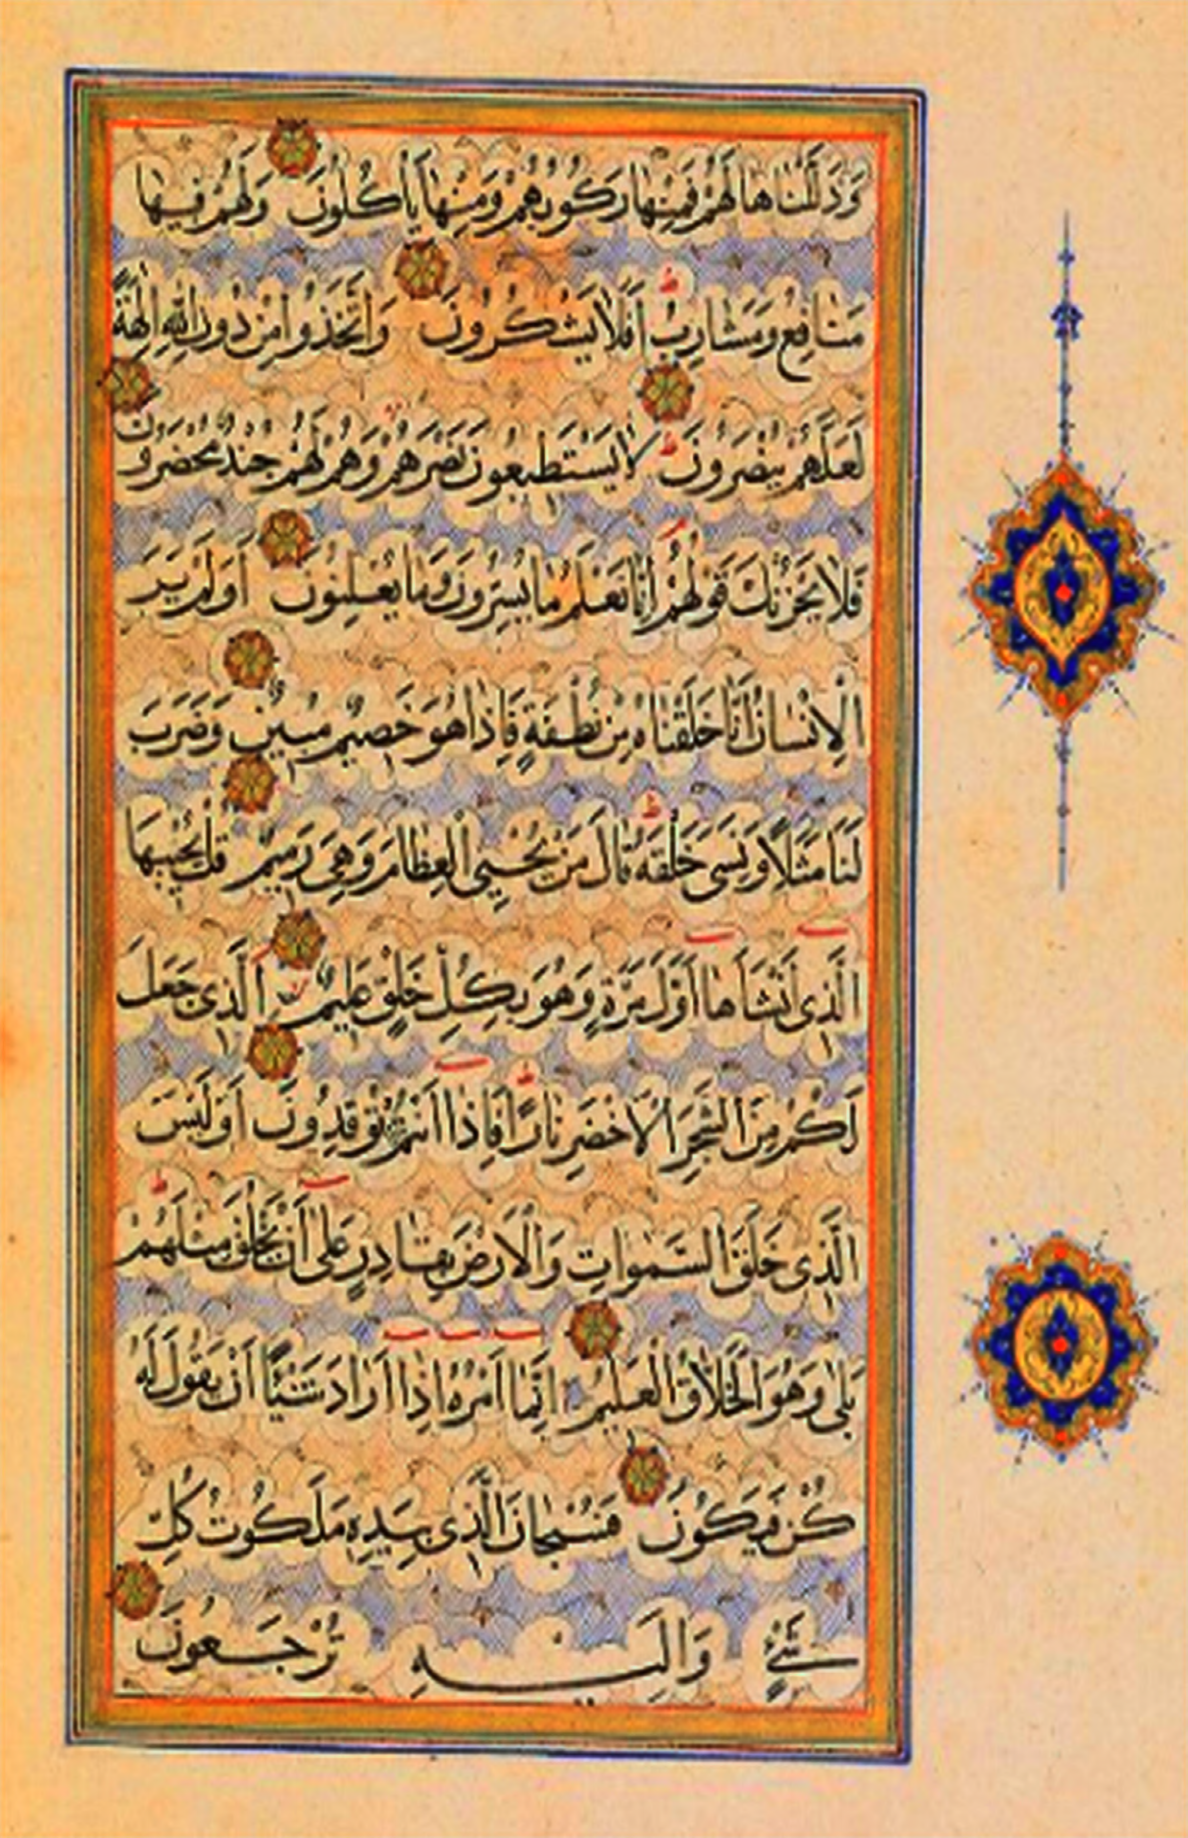 وَذَلَّلْنَاهَا لَهُمْ فَمِنْهَا رَكُوبُهُمْ وَمِنْهَا يَأْكُلُونَ وَلَهُمْ فِيهَا
مَنَافِعُ وَمَشَارِبُ أَفَلَا يَشْكُرُونَ وَاتَّخَذُوا مِنْ دُونِ اللَّهِ اٰلِهَةً
لَعَلَّهُمْ يُنْصَرُونَ لَا يَسْتَطِيعُونَ نَصْرَهُمْ وَهُمْ لَهُمْ جُنْدٌ مُحْضَرُونَ
فَلَا يَحْزُنْكَ قَوْلُهُمْ إِنَّا نَعْلَمُ مَا يُسِرُّونَ وَمَا يُعْلِنُونَ أَوَلَمْ يَرَ
الْاِنْسَانُ أَنَّا خَلَقْنَاهُ مِنْ نُطْفَةٍ فَاِذَا هُوَ خَصِيمٌ مُبِينٌ وَضَرَبَ
لَنَا مَثَلًا وَنَسِىَ خَلْقَهُ قَالَ مَنْ يُحْيِى الْعِظَامَ وَهِىَ رَمِيمٌ قُلْ يُحْيِيهَا
الَّذِى أَنْشَأَهَا أَوَّلَ مَرَّةٍ وَهُوَ بِكُلِّ خَلْقٍ عَلِيمٌ الَّذِى جَعَلَ
لَكُمْ مِنَ الشَّجَرِ الْاَخْضَرِ نَارًا فَاِذَا أَنْتُمْ مِنْهُ تُوقِدُونَ أَوَلَيْسَ
الَّذِى خَلَقَ السَّمٰوَاتِ وَالْاَرْضَ بِقَادِرٍ عَلٰى أَنْ يَخْلُقَ مِثْلَهُمْ
بَلٰى وَهُوَ الْخَلَّاقُ الْعَلِيمُ اِنَّمَا أَمْرُهُ اِذَا أَرَادَ شَيْئًا أَنْ يَقُولَ لَهُ
كُنْ فَيَكُونُ فَسُبْحَانَ الَّذِى بِيَدِهِ مَلَكُوتُ كُلِّ
شَىْءٍ وَاِلَيْهِ تُرْجَعُونَ